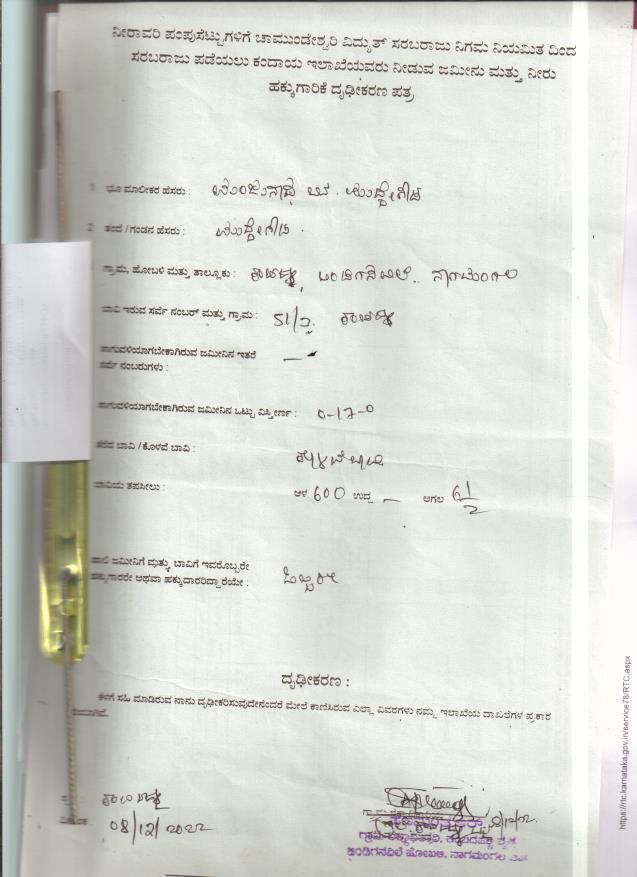 ನೀರಾವರಿ ಪಂಪುಸೆಟ್ಟುಗಳಿಗೆ ಚಾಮುಂಡೇಶ್ವರಿ ವಿದ್ಯುತ್ ಸರಬರಾಜು ನಿಗಮ ನಿಯಮಿತ ದಿಂದ
ಸರಬರಾಜು ಪಡೆಯಲು ಕಂದಾಯ ಇಲಾಖೆಯವರು ನೀಡುವ ಜಮೀನು ಮತ್ತು ನೀರು
ಹಕ್ಕುಗಾರಿಕೆ ದೃಢೀಕರಣ ಪತ್ರ
1 ಭೂ ಮಾಲೀಕರ ಹೆಸರು : ಮಂಜುನಾಥ ಬಿನ್ ಮುದ್ದೇಗೌಡ
2 ತಂದೆ / ಗಂಡನ ಹೆಸರು : ಮುದ್ದೇಗೌಡ
ಗ್ರಾಮ, ಹೋಬಳಿ ಮತ್ತು ತಾಲ್ಲೂಕು : ಬಿಂಡಿಗನವಿಲೆ ನಾಗಮಂಗಲ
ಬಾವಿ ಇರುವ ಸರ್ವೆ ನಂಬರ್ ಮತ್ತು ಗ್ರಾಮ : 51/2
ಸಾಗುವಳಿಯಾಗಬೇಕಾಗಿರುವ ಜಮೀನಿನ ಇತರೆ —
ಸರ್ವೆ ನಂಬರುಗಳು :
ಸಾಗುವಳಿಯಾಗಬೇಕಾಗಿರುವ ಜಮೀನಿನ ಒಟ್ಟು ವಿಸ್ತೀರ್ಣ : 0-17-0
ತೆರೆದ ಬಾವಿ / ಕೊಳವೆ ಬಾವಿ : ಕೊಳವೆಬಾವಿ
ಬಾವಿಯ ತಪಸೀಲು : ಆಳ 600 ಉದ್ದ — ಅಗಲ 6 1/2
ಹಾಲಿ ಜಮೀನಿಗೆ ಮತ್ತು ಬಾವಿಗೆ ಇವರೊಬ್ಬರೇ
ಹಕ್ಕುಗಾರರೇ ಅಥವಾ ಹಕ್ಕುದಾರರಿದ್ದಾರೆಯೇ : ಒಬ್ಬರೇ
ದೃಢೀಕರಣ :
ಕೆಳಗೆ ಸಹಿ ಮಾಡಿರುವ ನಾನು ದೃಢೀಕರಿಸುವುದೇನೆಂದರೆ ಮೇಲೆ ಕಾಣಿಸಿರುವ ಎಲ್ಲಾ ವಿವರಗಳು ನಮ್ಮ ಇಲಾಖೆಯ ದಾಖಲೆಗಳ ಪ್ರಕಾರ
08/12/2022
ಗ್ರಾಮ
ಬಿಂಡಿಗನವಿಲೆ ಹೋಬಳಿ, ನಾಗಮಂಗಲ
https://rtc.karnataka.gov.in/service78/RTC.aspx